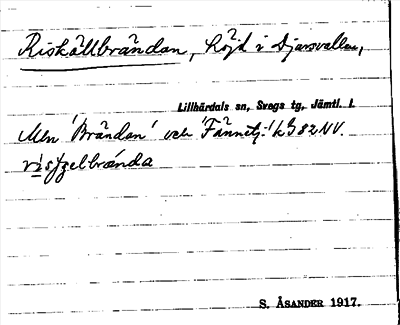 Riskällbrändan, höjd i Djursvallen,
Lillhärdals sn, Svegs tg, Jämtl. l.
Men 'Brändan' och 'Fännetj.' k G 82 NV.
S. ÅSANDER 1917.